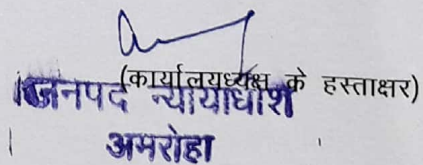 (कार्यालयध्यक्ष के हस्ताक्षर)
जनपद न्यायाधीश
अमरोहा